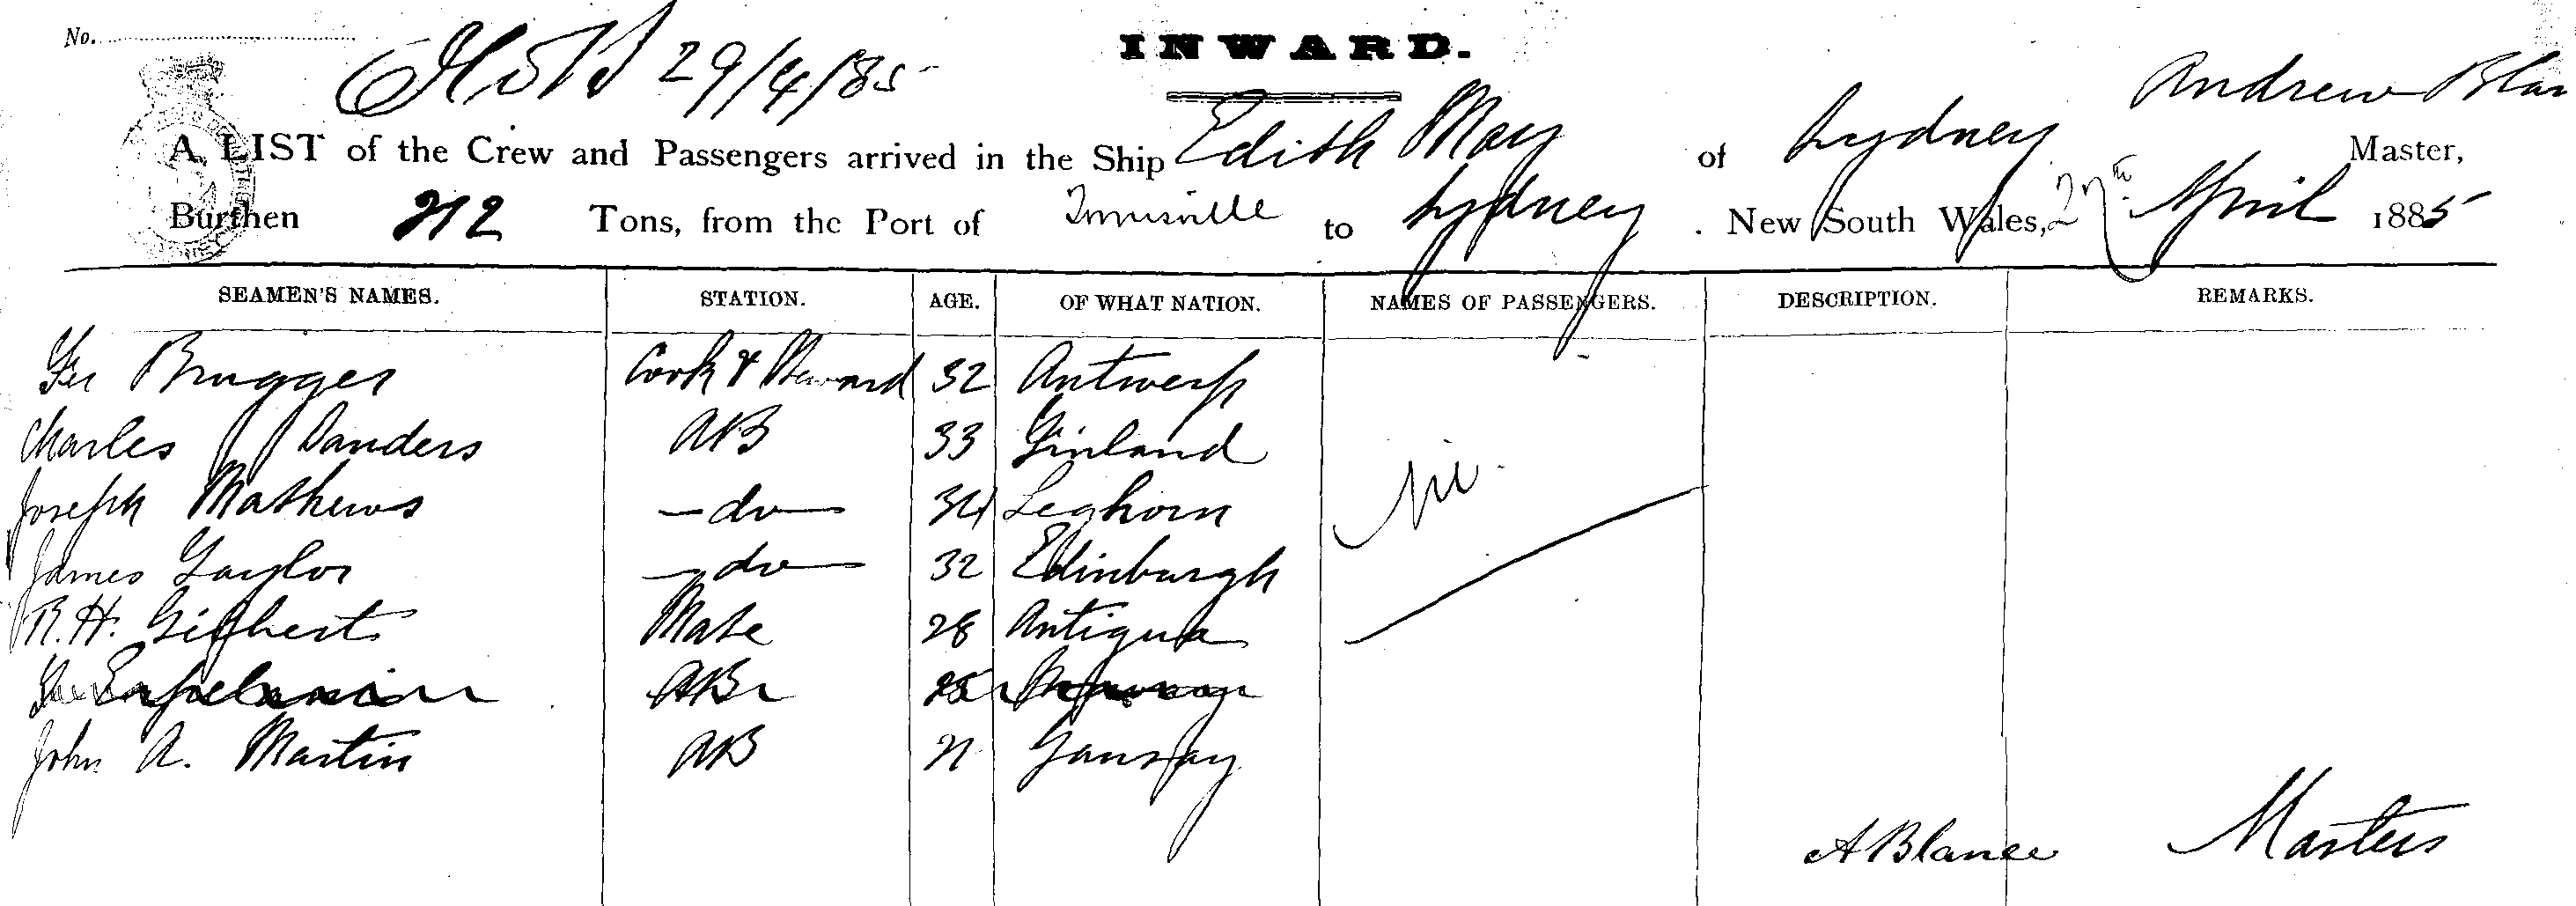 No.
29/4/85
INWARD.
Andrew Blan
A LIST of the Crew and Passengers arrived in the Ship Edith May of Sydney Master,
Burthen 212 Tons, from the Port of to Sydney. New South Wales, 27th April 1885
SEAMEN'S NAMES. STATION. AGE. OF WHAT NATION. NAMES OF PASSENGERS. DESCRIPTION. REMARKS.
Brugger Cook & Steward 32 Antwerp
Charles Sanders AB 33 Finland
Joseph Mathews - do - 34 Leghorn nil.
James Taylor - do - 32 Edinburgh
R. H. Gilbert Mate 28 Antigua
AB 25
John A. Martin AB 21
A Blance Masters